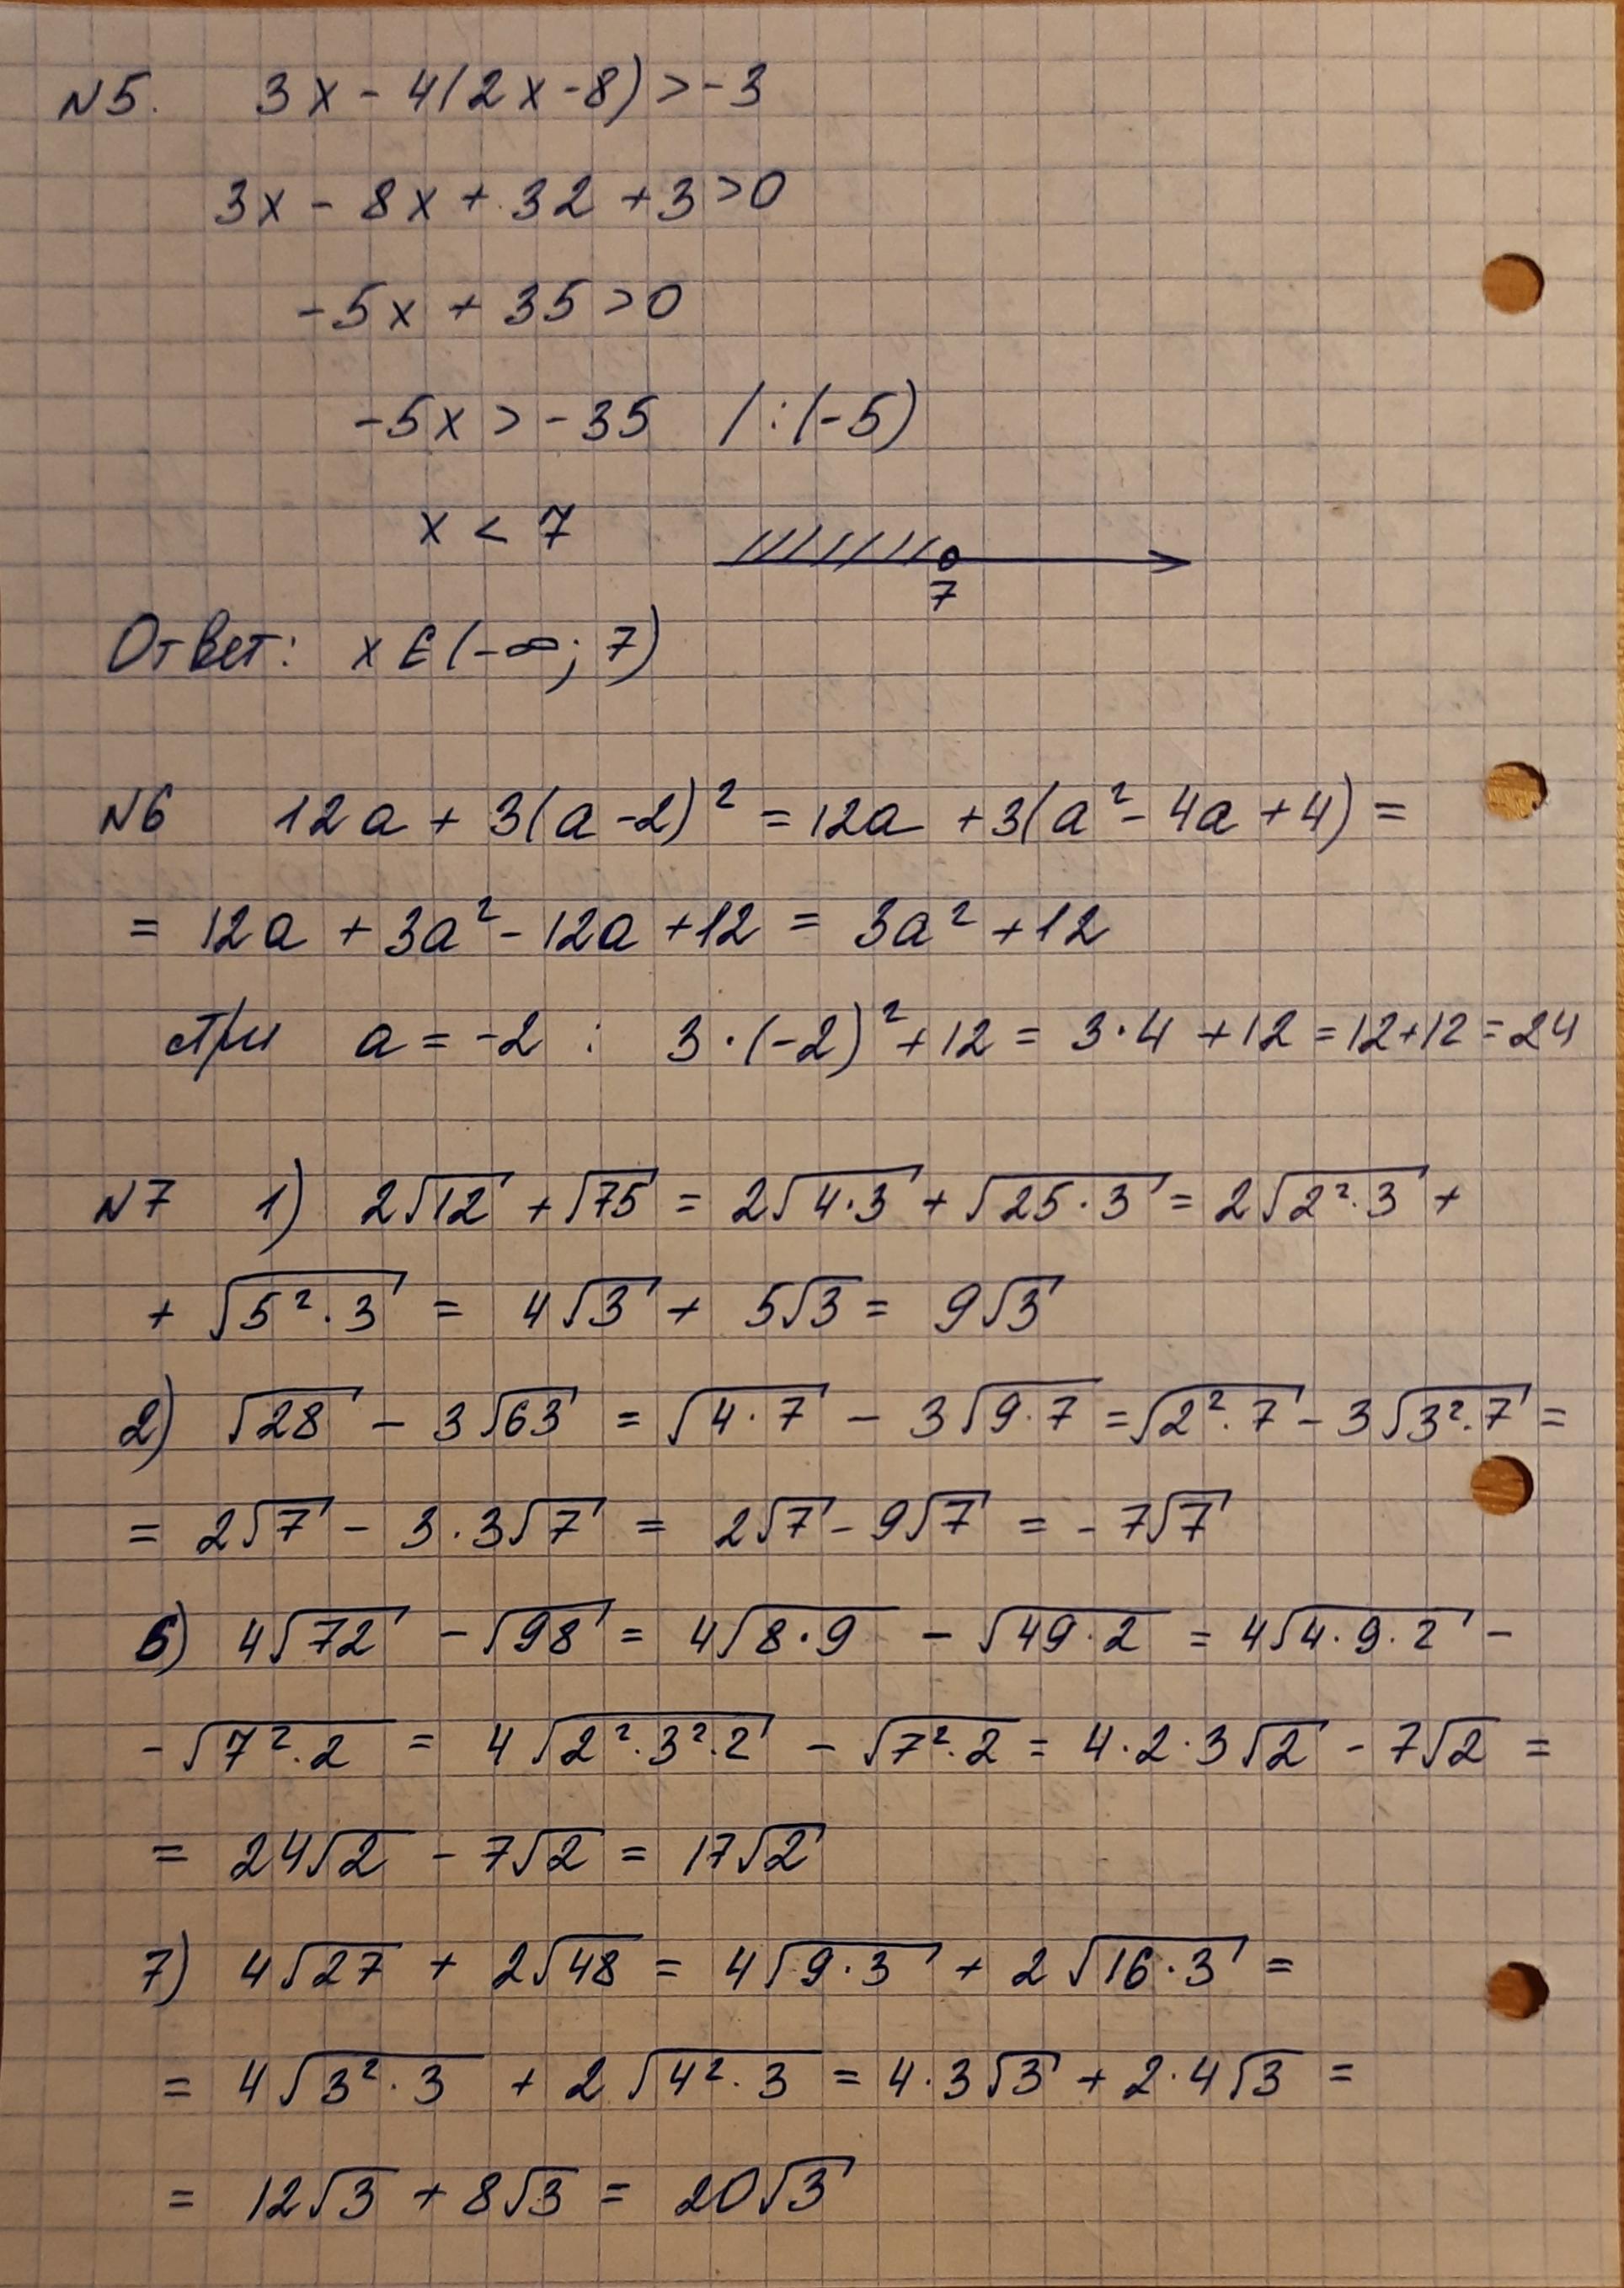 №5. 3x - 4(2x - 8) > -3
3x - 8x + 32 + 3 > 0
-5x + 35 > 0
-5x > -35 /:(-5)
x < 7
7
Ответ: x ∈ (-∞; 7)
№6 12a + 3(a - 2)² = 12a + 3(a² - 4a + 4) =
= 12a + 3a² - 12a + 12 = 3a² + 12
При a = -2 : 3·(-2)² + 12 = 3·4 + 12 = 12 + 12 = 24
№7 1) 2√12 + √75 = 2√(4·3) + √(25·3) = 2√(2²·3) +
+ √(5²·3) = 4√3 + 5√3 = 9√3
2) √28 - 3√63 = √(4·7) - 3√(9·7) = √(2²·7) - 3√(3²·7) =
= 2√7 - 3·3√7 = 2√7 - 9√7 = -7√7
6) 4√72 - √98 = 4√(8·9) - √(49·2) = 4√(4·9·2) -
- √(7²·2) = 4√(2²·3²·2) - √(7²·2) = 4·2·3√2 - 7√2 =
= 24√2 - 7√2 = 17√2
7) 4√27 + 2√48 = 4√(9·3) + 2√(16·3) =
= 4√(3²·3) + 2√(4²·3) = 4·3√3 + 2·4√3 =
= 12√3 + 8√3 = 20√3